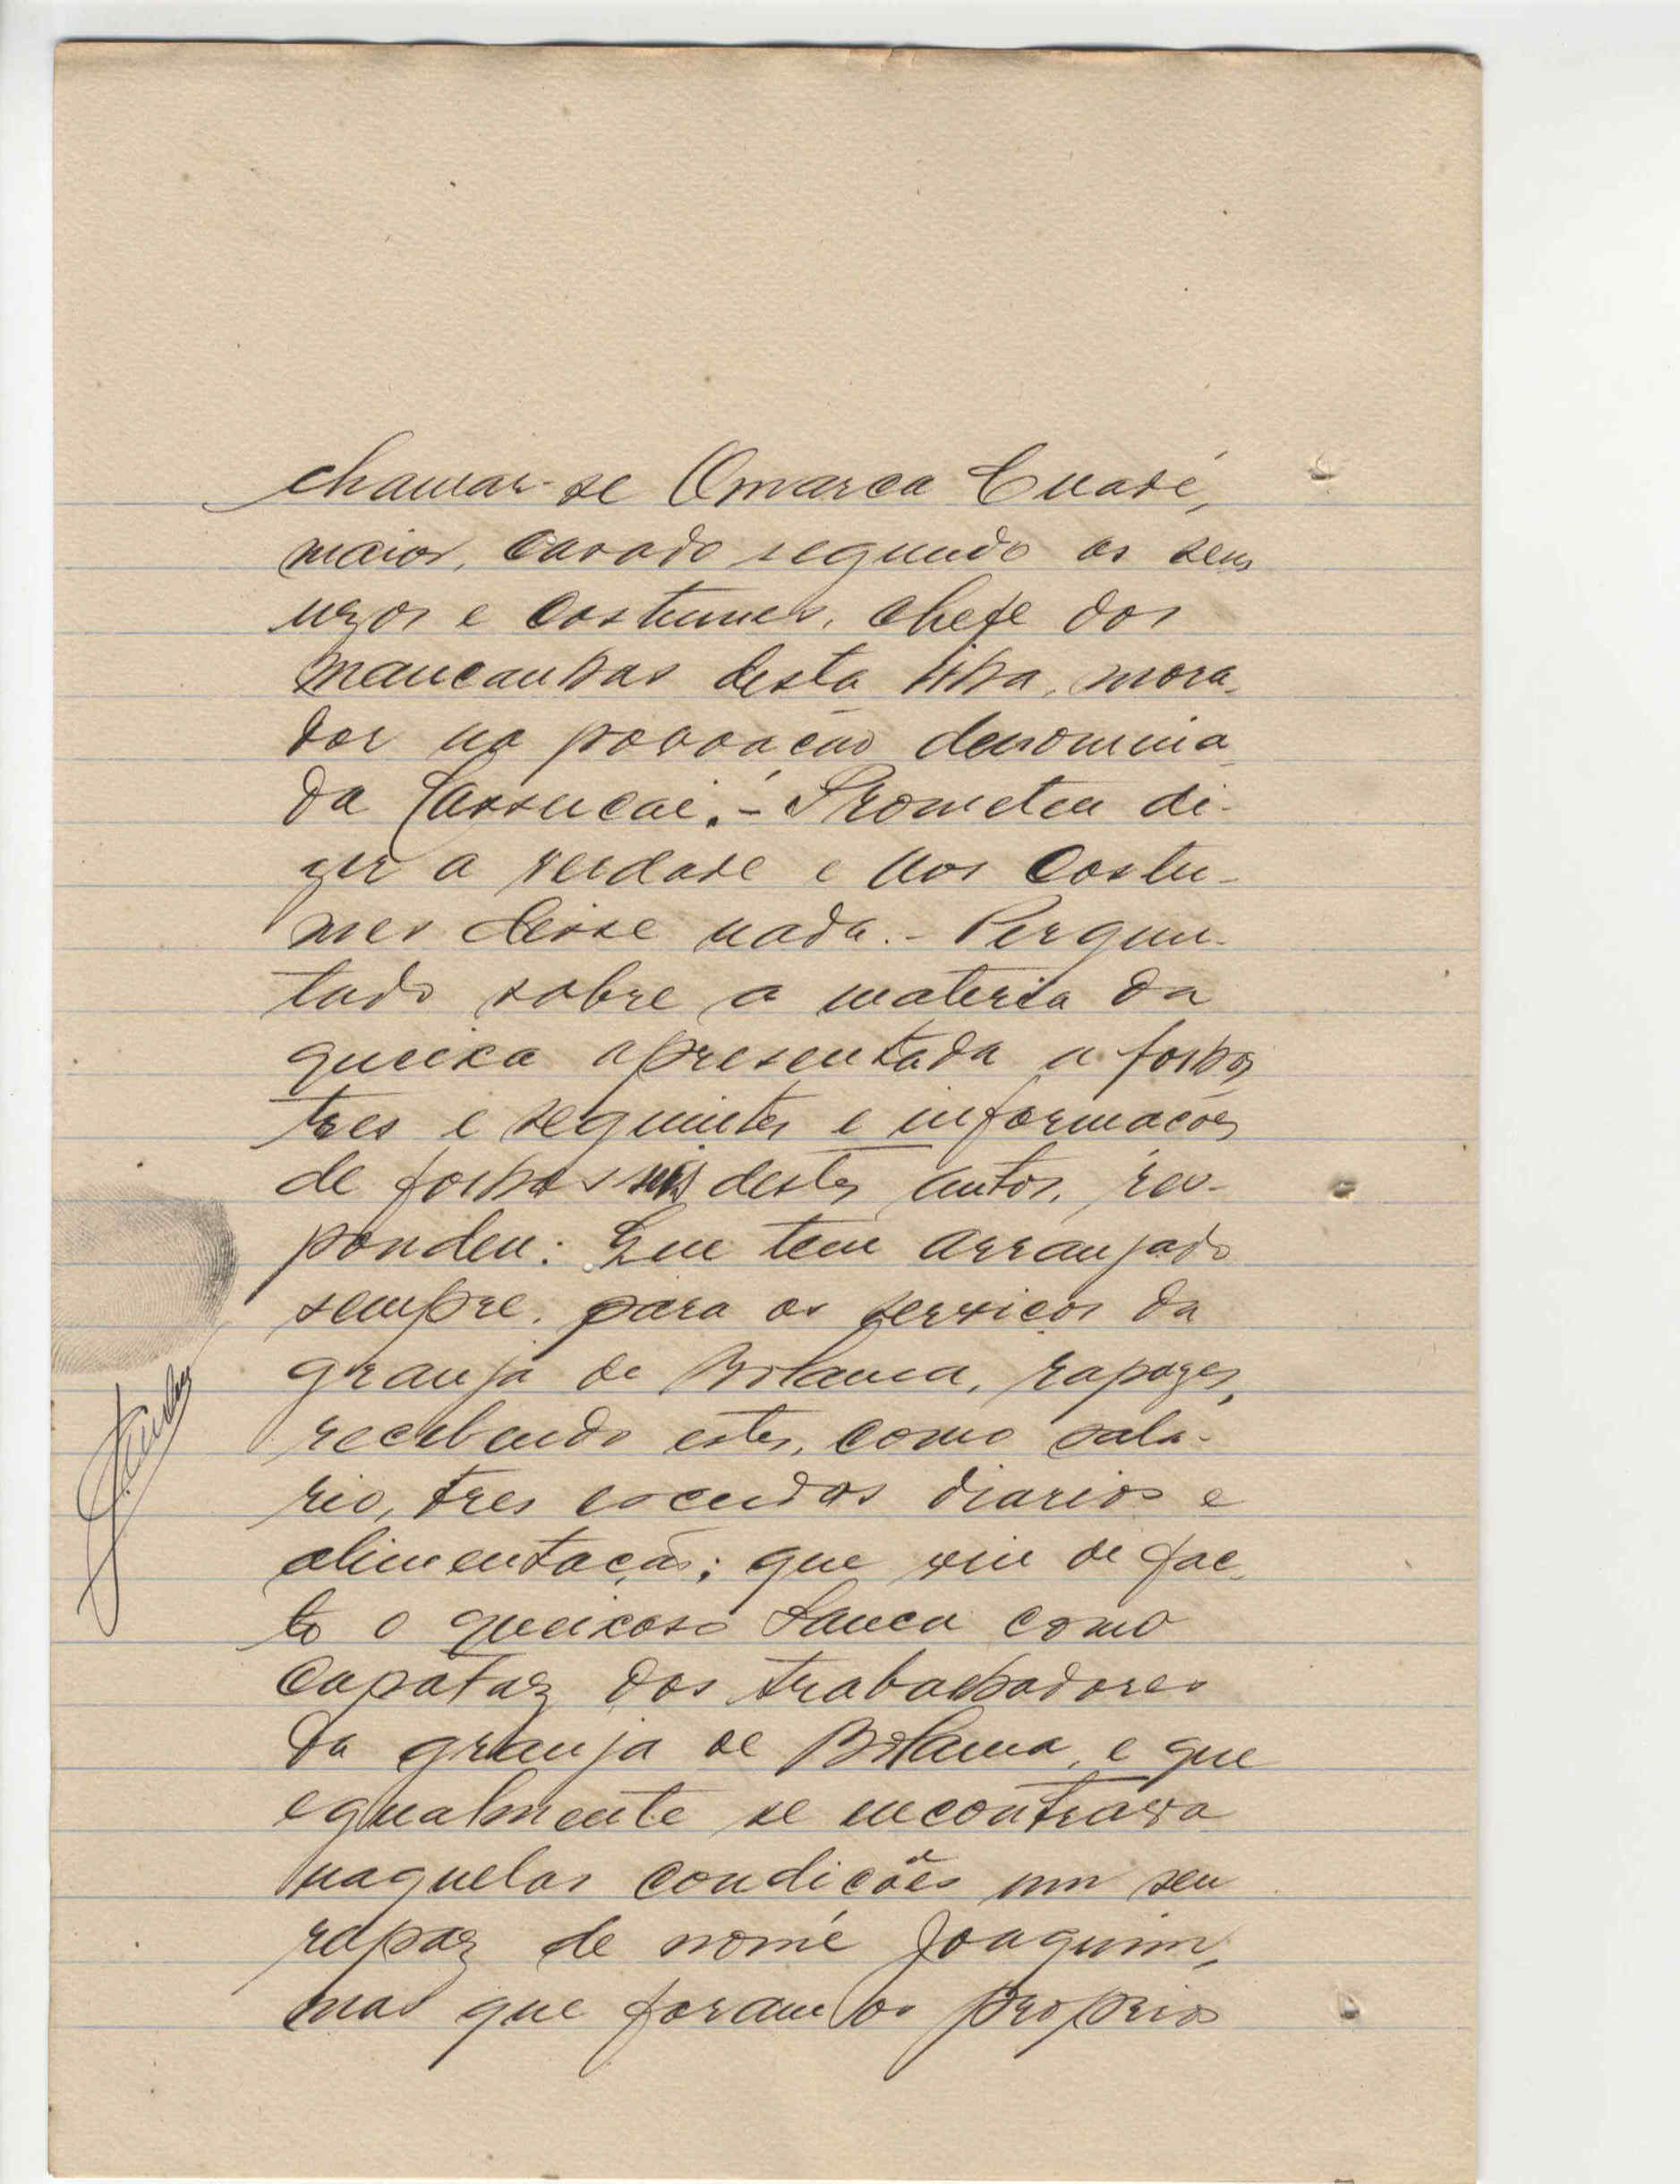 chamar-se Omarca Cuadé,
maior, casado segundo os seus
uzos e costumes, chefe dos
mancanhas desta ilha, mora-
dor na povoação denomina-
da Cassucai.- Prometeu di-
zer a verdade e aos costu-
mes disse nada.- Pergun-
tado sobre a materia da
queixa apresentada a folhas
tres e seguintes e informações
de folhas seis destes autos, res-
pondeu: Que tem arranjado
sempre, para os serviços da
granja de Bolama, rapazes,
recebendo estes, como sala-
rio, tres escudos diarios e
alimentação; que viu de fac-
to o queixoso Sanca como
capataz dos trabalhadores
da granja de Bolama, e que
egualmente se encontrava
naquelas condições um seu
rapaz de nome Joaquim,
mas que foram os proprios